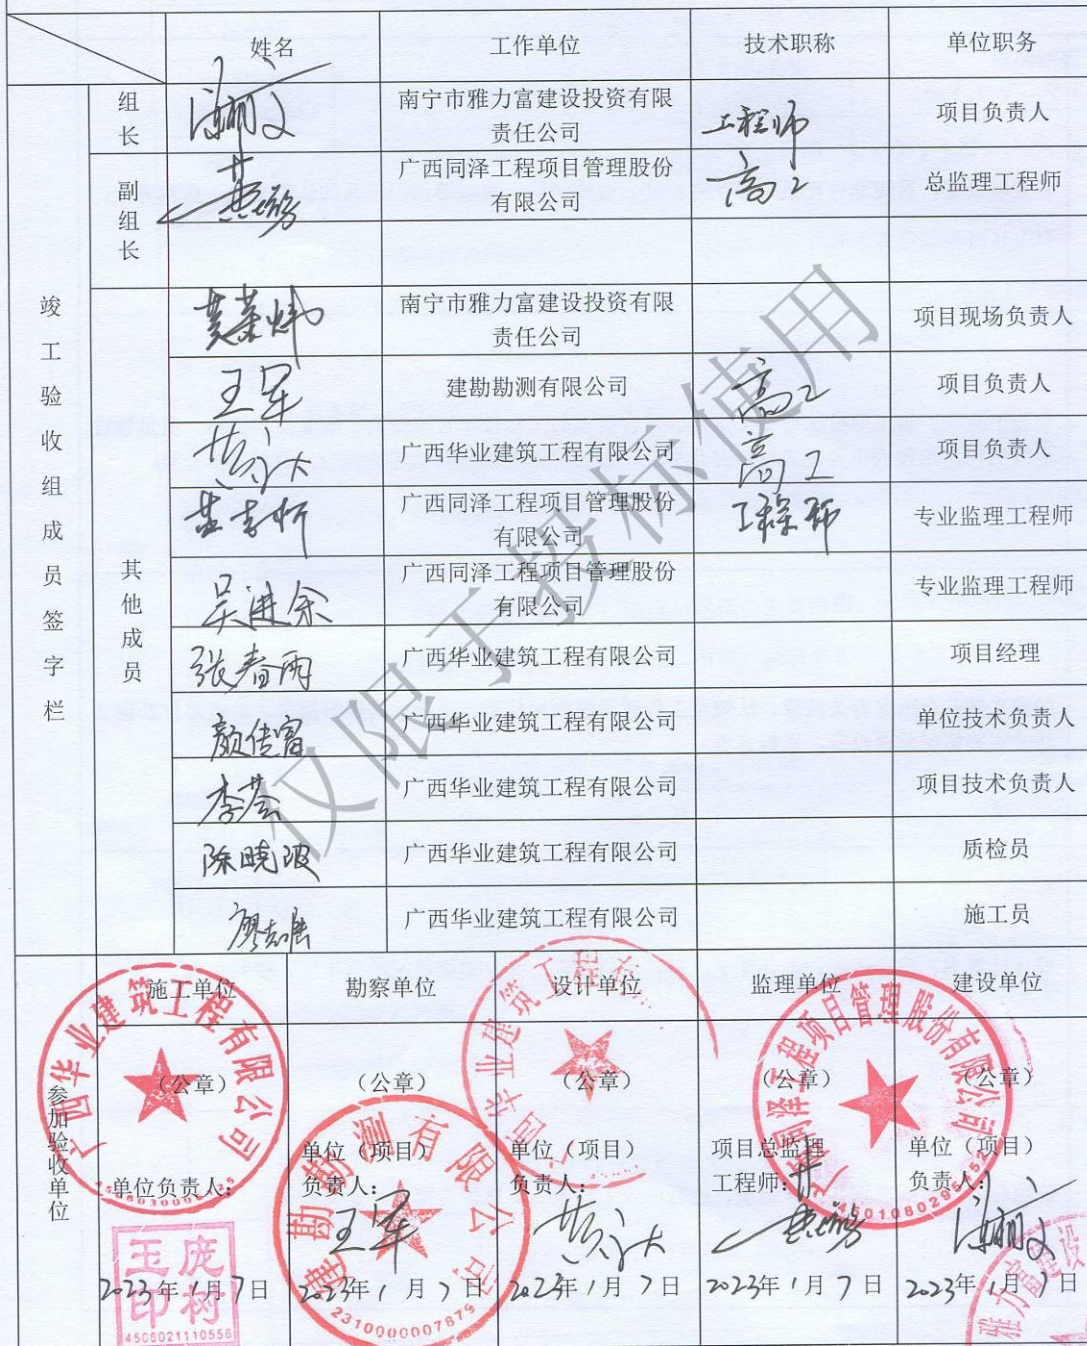 姓名 工作单位 技术职称 单位职务
竣工验收组成员签字栏
组长
南宁市雅力富建设投资有限
责任公司
工程师
项目负责人
副组长
广西同泽工程项目管理股份
有限公司
高工
总监理工程师
其他成员
南宁市雅力富建设投资有限
责任公司
项目现场负责人
王军 建勘勘测有限公司 高工 项目负责人
广西华业建筑工程有限公司 高工 项目负责人
广西同泽工程项目管理股份
有限公司
工程师
专业监理工程师
吴进余
广西同泽工程项目管理股份
有限公司
专业监理工程师
张春雨 广西华业建筑工程有限公司 项目经理
颜佳富 广西华业建筑工程有限公司 单位技术负责人
广西华业建筑工程有限公司 项目技术负责人
陈晓波 广西华业建筑工程有限公司 质检员
广西华业建筑工程有限公司 施工员
仅限于投标使用
参加验收单位
施工单位 勘察单位 设计单位 监理单位 建设单位
(公章) (公章) (公章) (公章) (公章)
单位负责人:
单位(项目)
负责人:
王军
单位(项目)
负责人:
项目总监理
工程师:
单位(项目)
负责人:
2023年1月7日 2023年1月7日 2023年1月7日 2023年1月7日 2023年1月7日
广西华业建筑工程有限公司
建勘勘测有限公司
2310000007879
华业建筑工程有
广西同泽工程项目管理股份有限公司
4501080295152
雅力富建设
玉庞
印树
4506021110556